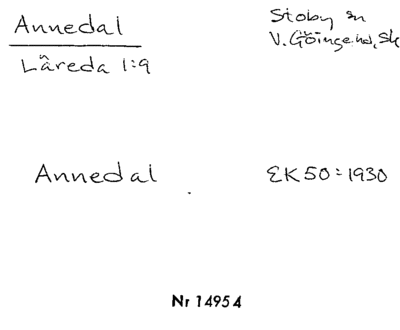 Annedal
Låreda 1:9
Stoby sn
V. Göinge hd, Sk
Annedal
EK 50 = 1930
Nr 14954